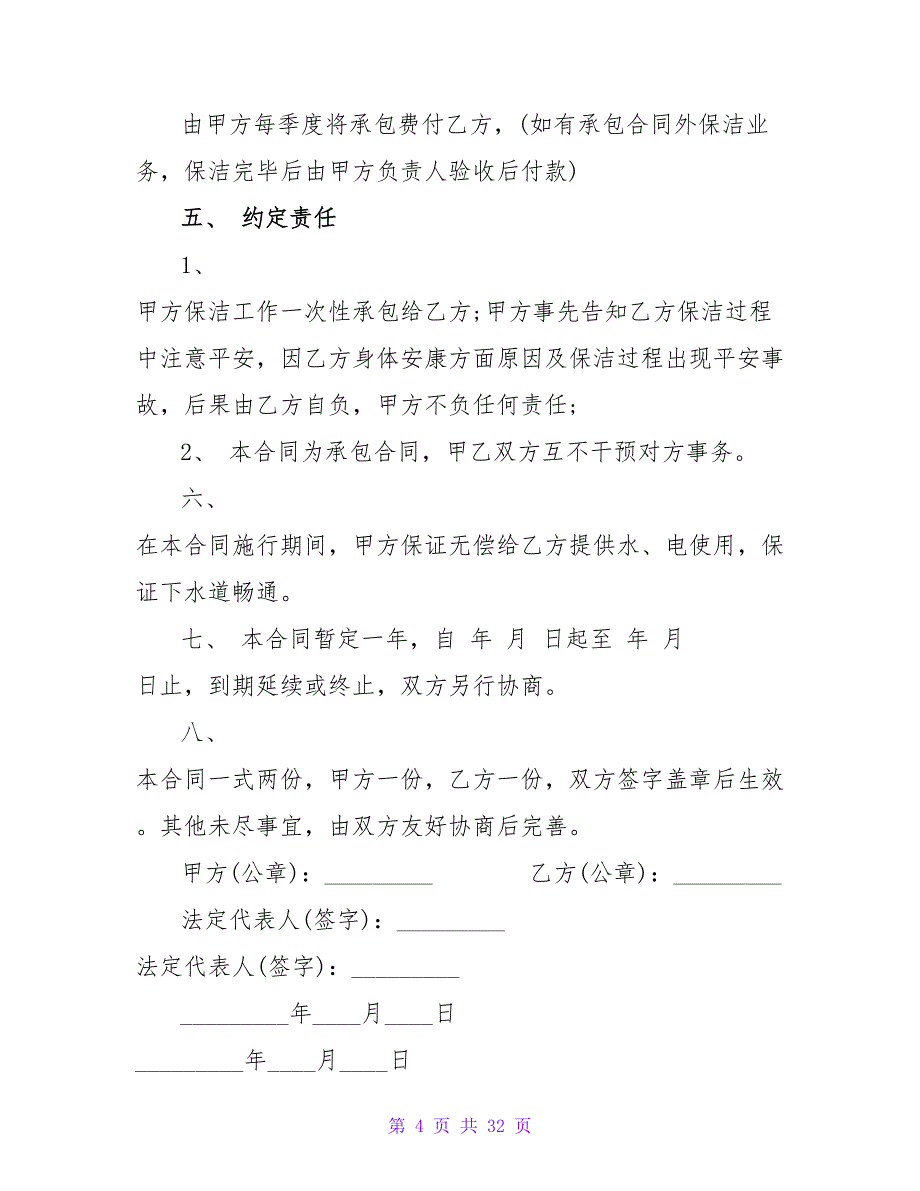 由甲方每季度将承包费付乙方，(如有承包合同外保洁业
务，保洁完毕后由甲方负责人验收后付款)
五、 约定责任
1、
甲方保洁工作一次性承包给乙方;甲方事先告知乙方保洁过程
中注意平安，因乙方身体安康方面原因及保洁过程出现平安事
故，后果由乙方自负，甲方不负任何责任;
2、 本合同为承包合同，甲乙双方互不干预对方事务。
六、
在本合同施行期间，甲方保证无偿给乙方提供水、电使用，保
证下水道畅通。
七、 本合同暂定一年，自 年 月 日起至 年 月
日止，到期延续或终止，双方另行协商。
八、
本合同一式两份，甲方一份，乙方一份，双方签字盖章后生效
。其他未尽事宜，由双方友好协商后完善。
甲方(公章)：_________ 乙方(公章)：_________
法定代表人(签字)：_________
法定代表人(签字)：_________
_________年____月____日
_________年____月____日
第 4 页 共 32 页